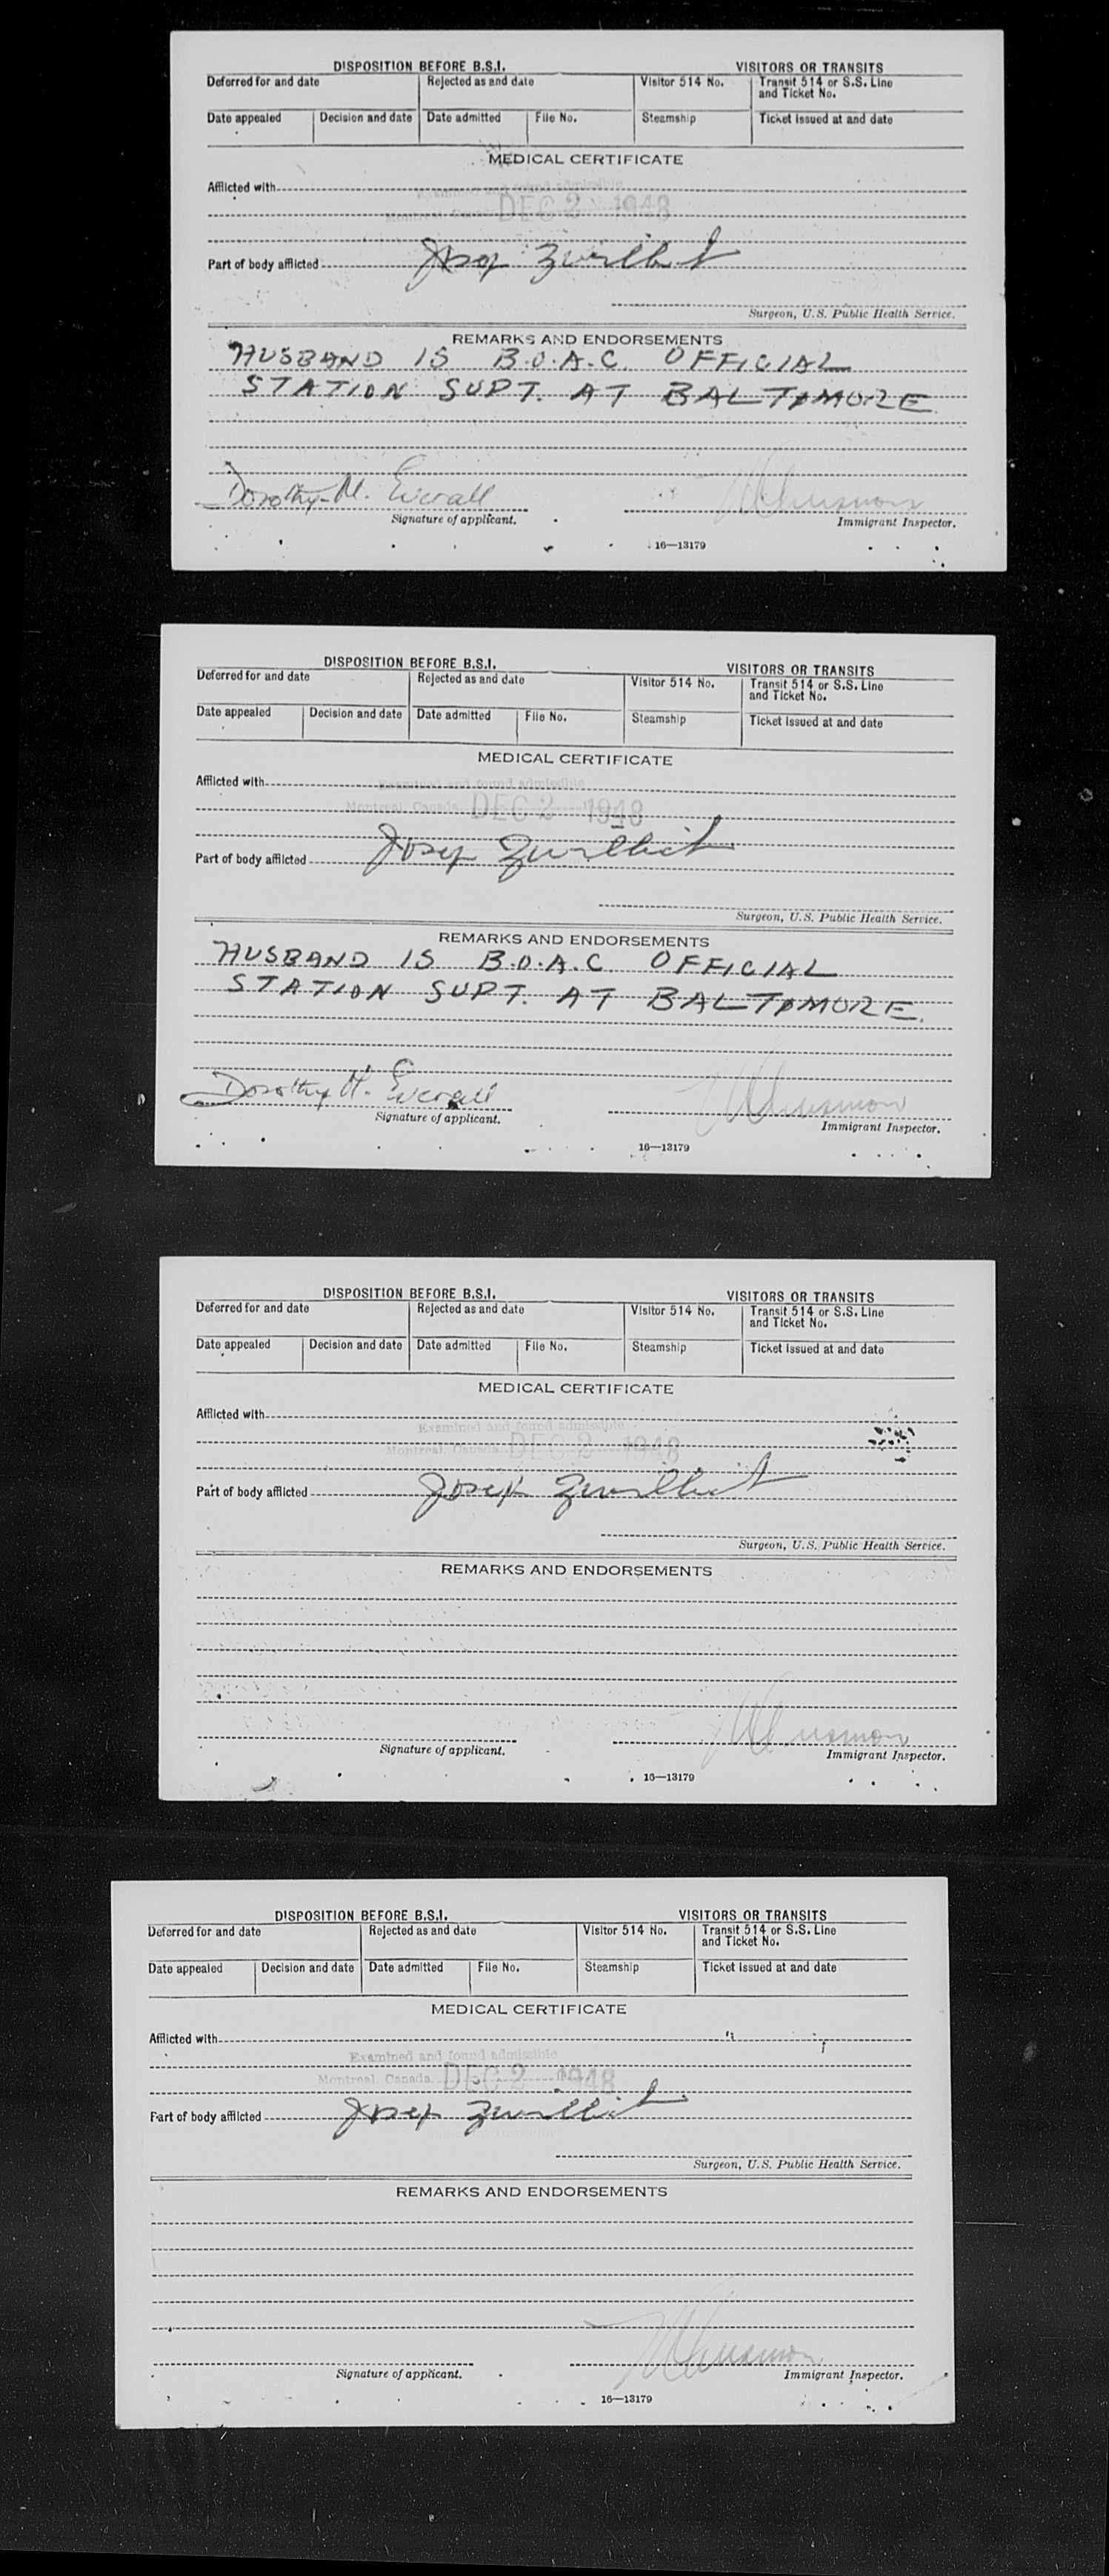 DISPOSITION BEFORE B.S.I. VISITORS OR TRANSITS
Deferred for and date Rejected as and date Visitor 514 No. Transit 514 or S.S. Line and Ticket No.
Date appealed Decision and date Date admitted File No. Steamship Ticket issued at and date
MEDICAL CERTIFICATE
Afflicted with
Examined and found admissible
Montreal, Canada DEC 2 1948
Part of body afflicted
Surgeon, U.S. Public Health Service.
REMARKS AND ENDORSEMENTS
HUSBAND IS B.O.A.C. OFFICIAL
STATION SUPT. AT BALTIMORE
Dorothy M. Everall
Signature of applicant. Immigrant Inspector.
16—13179
DISPOSITION BEFORE B.S.I. VISITORS OR TRANSITS
Deferred for and date Rejected as and date Visitor 514 No. Transit 514 or S.S. Line and Ticket No.
Date appealed Decision and date Date admitted File No. Steamship Ticket issued at and date
MEDICAL CERTIFICATE
Afflicted with
Examined and found admissible
Montreal, Canada DEC 2 1948
Part of body afflicted Josep
Surgeon, U.S. Public Health Service.
REMARKS AND ENDORSEMENTS
HUSBAND IS B.O.A.C. OFFICIAL
STATION SUPT. AT BALTIMORE.
Dorothy M. Everall
Signature of applicant. Immigrant Inspector.
16—13179
DISPOSITION BEFORE B.S.I. VISITORS OR TRANSITS
Deferred for and date Rejected as and date Visitor 514 No. Transit 514 or S.S. Line and Ticket No.
Date appealed Decision and date Date admitted File No. Steamship Ticket issued at and date
MEDICAL CERTIFICATE
Afflicted with
Examined and found admissible
Montreal, Canada DEC 2 1948
Part of body afflicted
Surgeon, U.S. Public Health Service.
REMARKS AND ENDORSEMENTS
Signature of applicant. Immigrant Inspector.
16—13179
DISPOSITION BEFORE B.S.I. VISITORS OR TRANSITS
Deferred for and date Rejected as and date Visitor 514 No. Transit 514 or S.S. Line and Ticket No.
Date appealed Decision and date Date admitted File No. Steamship Ticket issued at and date
MEDICAL CERTIFICATE
Afflicted with
Examined and found admissible
Montreal, Canada DEC 2 1948
Part of body afflicted
Surgeon, U.S. Public Health Service.
REMARKS AND ENDORSEMENTS
Signature of applicant. Immigrant Inspector.
16—13179